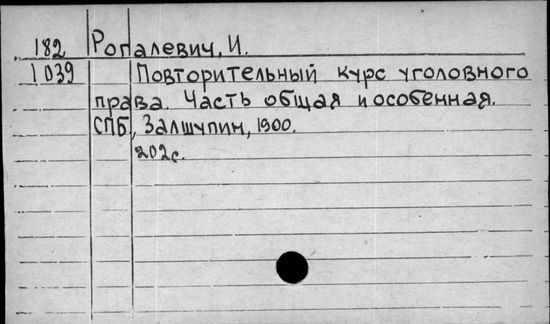 182 Ропалевич, И.
1039 Повторительный курс уголовного
права. Часть общая и особенная.
СПБ, Залшупин, 1900.
202с.